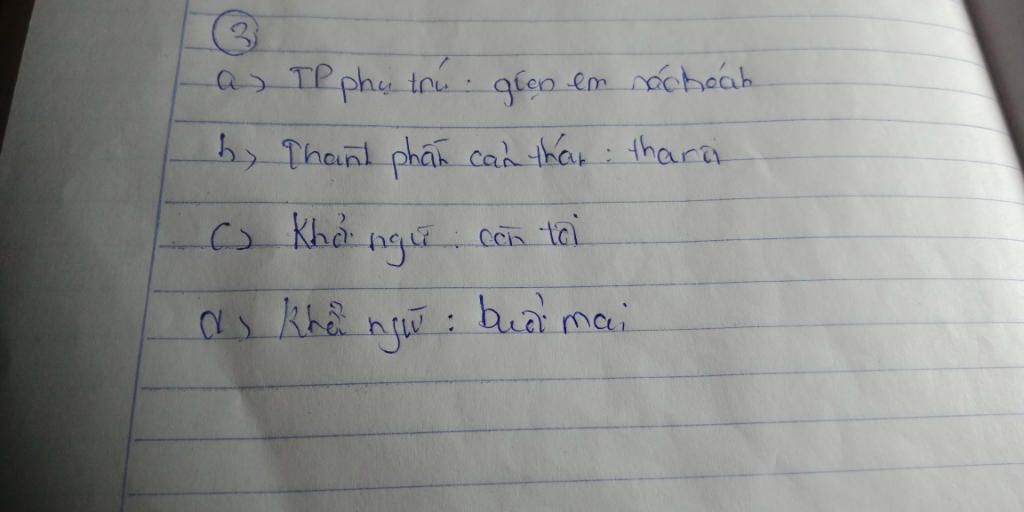 ③
a) TP phụ trú: giọn em xáchoách
b) Thành phần cản thán: thara
c) Khở ngữ: còn tôi
d) Khở ngữ: buổi mai